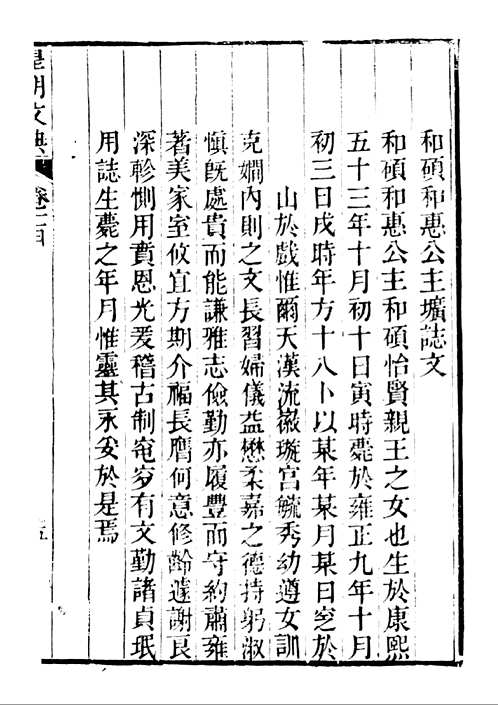 和碩和惠公主壙誌文
和碩和惠公主和碩怡賢親王之女也生於康熙
五十三年十月初十日寅時薨於雍正九年十月
初三日戌時年方十八卜以某年某月某日窆於
山於戲惟爾天漢流徽璇宮毓秀幼遵女訓
克嫺內則之文長習婦儀益懋柔嘉之德持躬淑
慎旣處貴而能謙雅志儉勤亦履豐而守約肅雍
著美家室攸宜方期介福長膺何意修齡遽謝良
深軫惻用賁恩光爰稽古制窀穸有文勒諸貞珉
用誌生薨之年月惟靈其永安於是焉
皇朝文典
卷二百
五